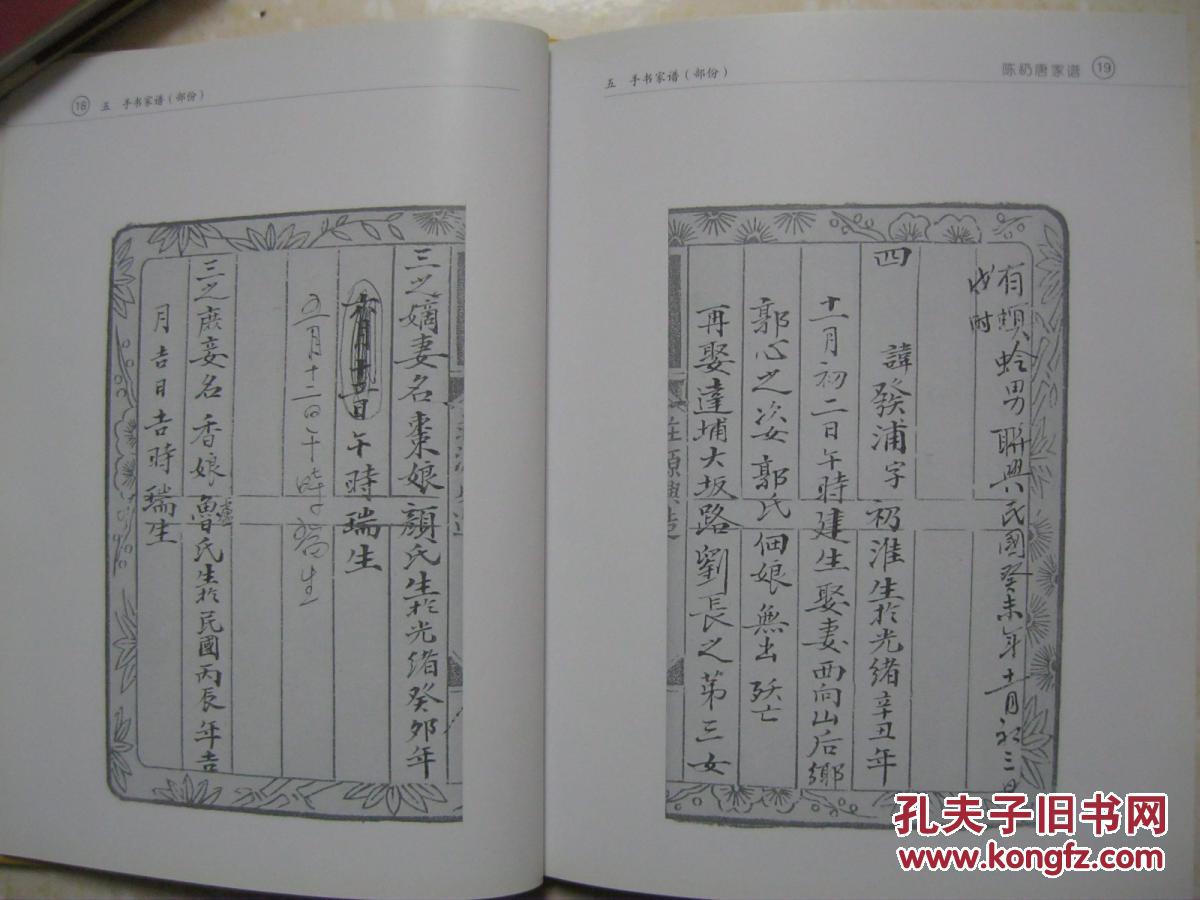 18 五 手书家谱（部份）
三之嫡妻名棗娘顏氏生於光緒癸卯年
日午時瑞生
五月十二日午時瑞生
三之庶妾名香娘魯氏生於民國丙辰年吉
盧
月吉日吉時瑞生
五 手书家谱（部份）
陈礽唐家谱 19
有螟蛉男聯興民國癸未年十一月初三日
戌时
四 諱發浦字礽淮生於光緒辛丑年
十一月初二日午時建生娶妻西向山后鄉
郭心之姿郭氏佃娘無出殀亡
再娶達埔大坂路劉長之第三女
孔夫子旧书网
www.kongfz.com